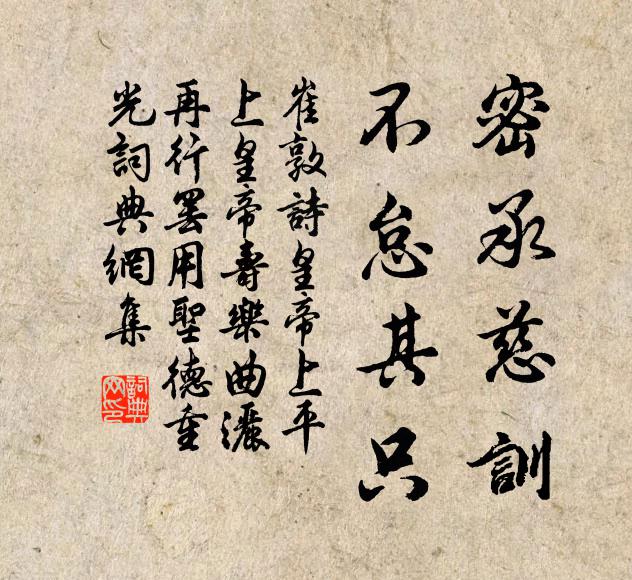 密承慈訓
不怠其只
崔敦詩皇帝上平
上皇帝壽樂曲灑
再行罢用聖德重
光詞典網集
詞典網印